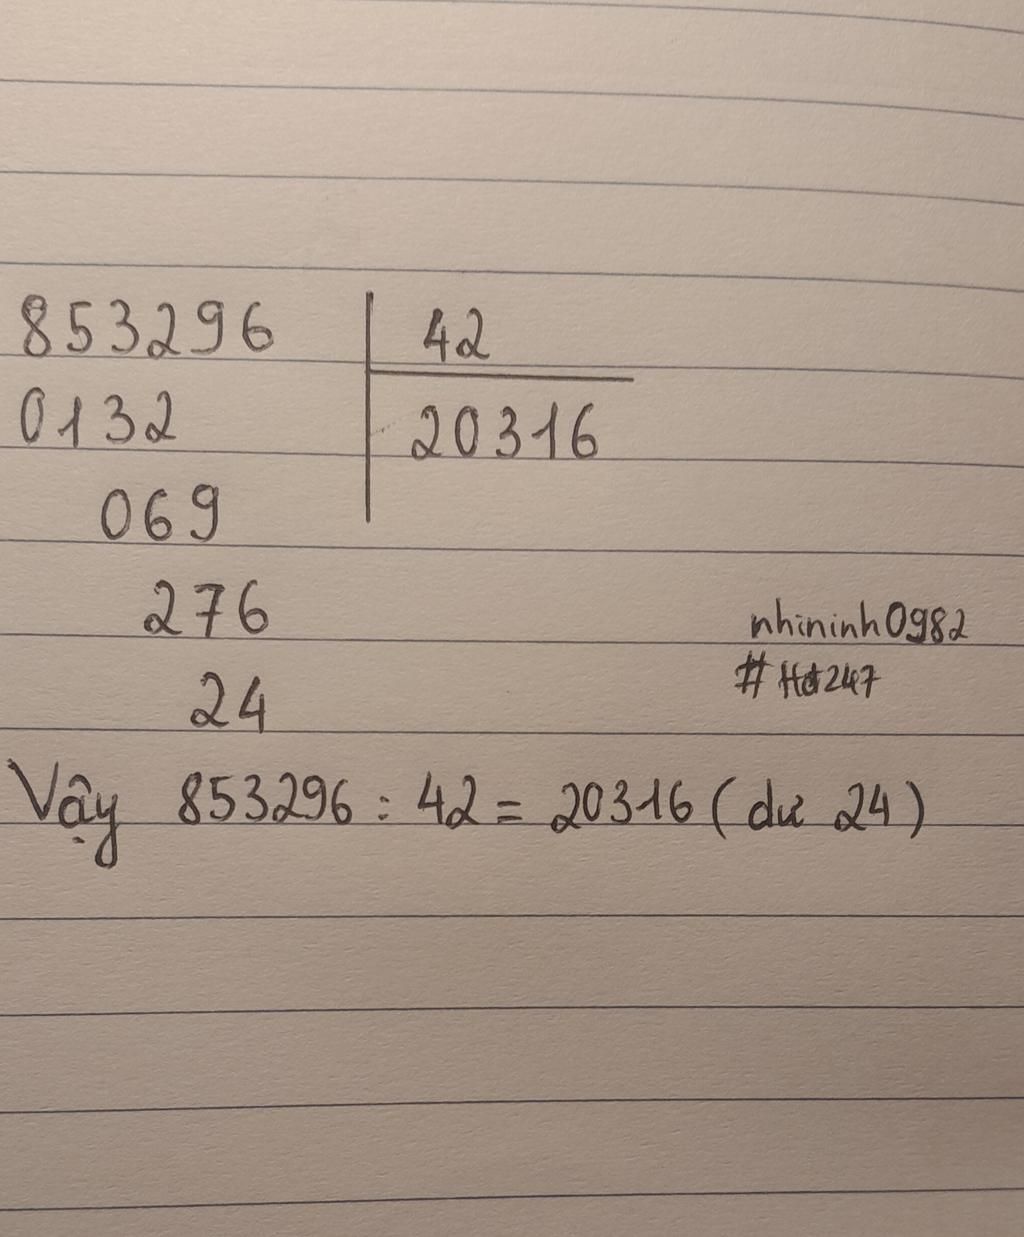 853296 42
0132 20316
069
276
24
nhininh0982
#Hd247
Vậy 853296 : 42 = 20316 (dư 24)